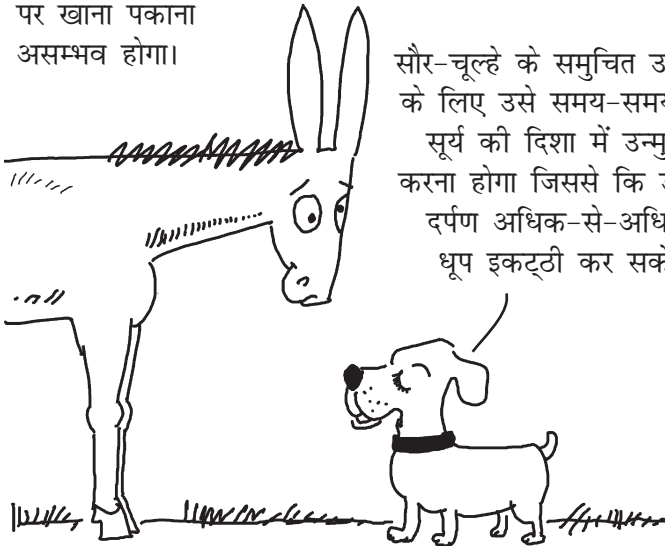 पर खाना पकाना
असम्भव होगा।
सौर-चूल्हे के समुचित
के लिए उसे समय-समय
सूर्य की दिशा में
करना होगा जिससे कि
दर्पण अधिक-से-अधि
धूप इकट्ठी कर सके